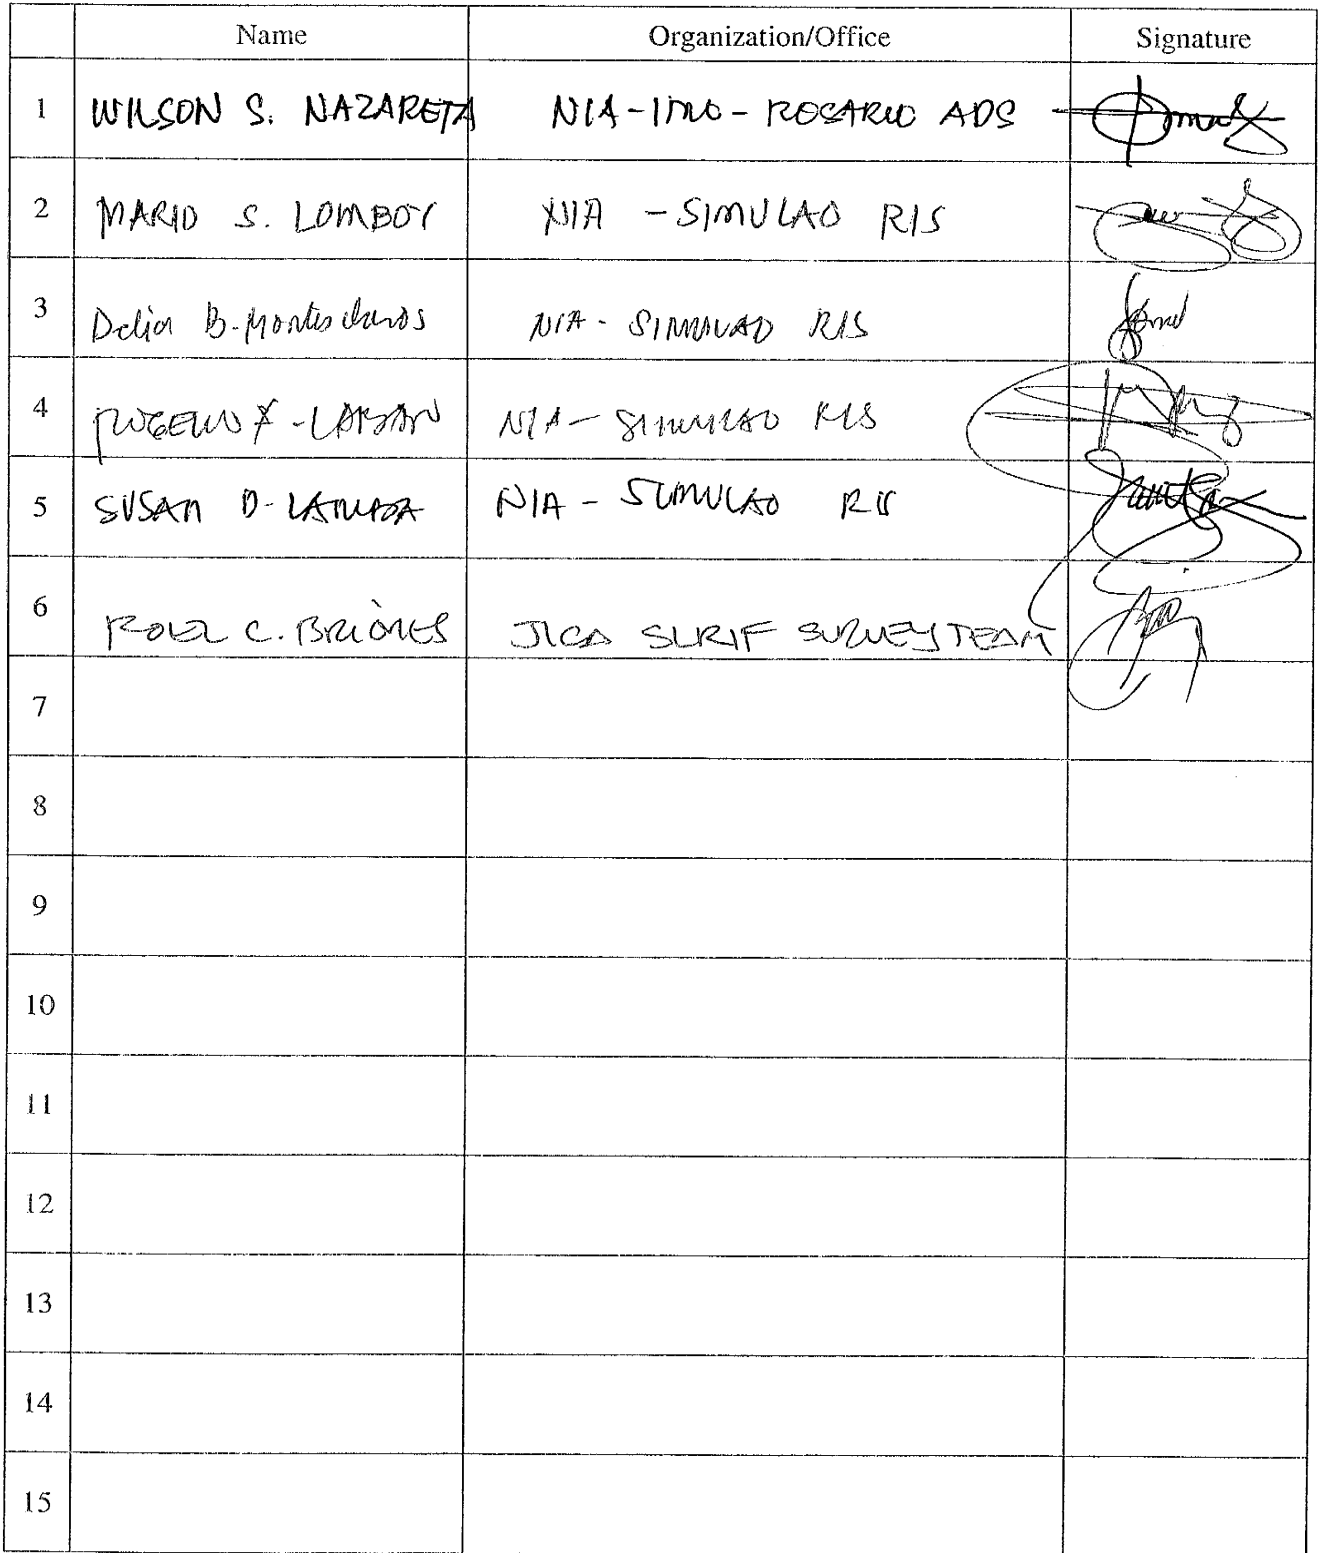 Name Organization/Office Signature
1 WILSON S. NAZARETA NIA-IMO-ROSARIO ADS
2 MARIO S. LOMBOY NIA - SIMULAO RIS
3 Delia B. Montesclaros NIA - SIMULAO RIS
4 ROGELIO NIA - SIMULAO RIS
5 SUSAN D. NIA - SIMULAO RIS
6 C. BRIONES JICA SURVEY TEAM
7
8
9
10
11
12
13
14
15